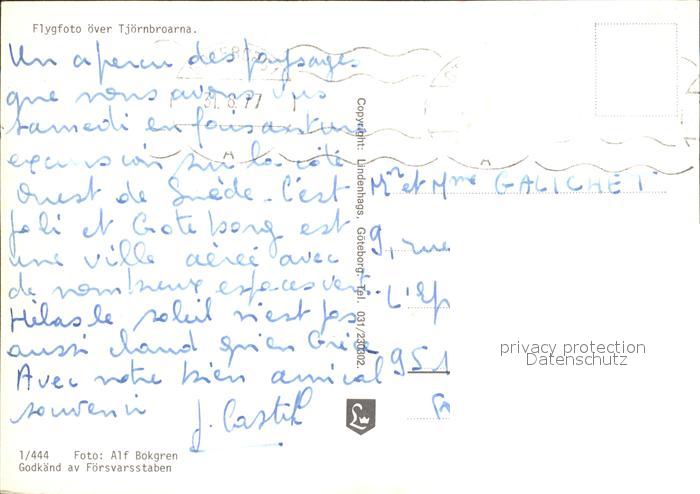 Flygfoto över Tjörnbroarna.
Un apercu des paysages
que nous avons vus
samedi en faisant une
excursion sur la côte
Ouest de Suède. C'est
joli et Goteborg est
une ville aérée avec
de nombreux espaces verts.
Hélas le soleil n'est pas
aussi chaud qu'en Grèce
Avec notre bien amical
souvenir
J. Castel
31.8.77
Copyright: Lindenhags. Göteborg. Tel. 031/230302.
Mr et Mme GALICHET
9, rue
L'Ep
951
privacy protection
Datenschutz
L
1/444 Foto: Alf Bokgren
Godkänd av Försvarsstaben